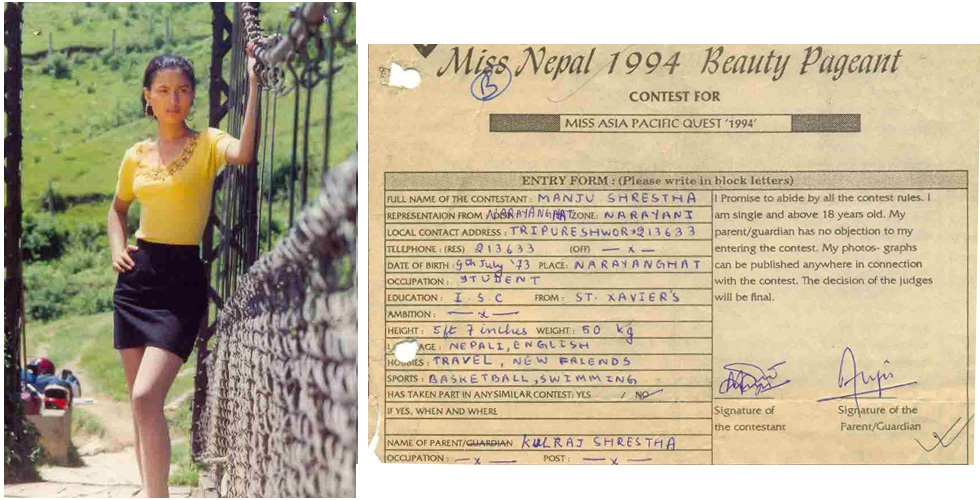 Miss Nepal 1994 Beauty Pageant
B
CONTEST FOR
MISS ASIA PACIFIC QUEST '1994'
ENTRY FORM : (Please write in block letters)
FULL NAME OF THE CONTESTANT : MANJU SHRESTHA
REPRESENTAION FROM / NARAYANGHAT ZONE: NARAYANI
LOCAL CONTACT ADDRESS : TRIPURESHWOR 213633
TELEPHONE : (RES) 213633 (OFF) — x —
DATE OF BIRTH : 9th July '73 PLACE: NARAYANGHAT
OCCUPATION : STUDENT
EDUCATION : I.S.C FROM : ST. XAVIER'S
AMBITION : — x —
HEIGHT : 5ft 7 inches WEIGHT : 50 kg
L AGE : NEPALI, ENGLISH
HOBBIES : TRAVEL, NEW FRIENDS
SPORTS : BASKETBALL, SWIMMING
HAS TAKEN PART IN ANY SIMILAR CONTEST: YES / NO
IF YES, WHEN AND WHERE
NAME OF PARENT/GUARDIAN KULRAJ SHRESTHA
OCCUPATION : — x — POST : — x —
I Promise to abide by all the contest rules. I
am single and above 18 years old. My
parent/guardian has no objection to my
entering the contest. My photos- graphs
can be published anywhere in connection
with the contest. The decision of the judges
will be final.
Signature of
the contestant
Signature of the
Parent/Guardian